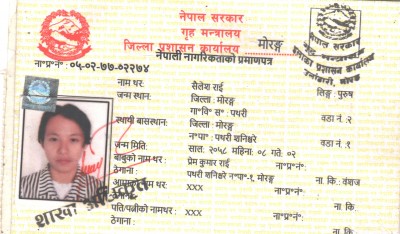 नेपाल सरकार
गृह मन्त्रालय
जिल्ला प्रशासन कार्यालय मोरङ्ग
नेपाली नागरिकताको प्रमाणपत्र
ना॰प्र॰नं॰ : ०५-०२-७७-०२२७४
नाम थर: सैतेश राई लिङ्ग: पुरुष
जन्म स्थान: जिल्ला : मोरङ्ग
गा॰वि॰ स॰ : पथरी वडा नं. :२
स्थायी बासस्थान: जिल्ला : मोरङ्ग
न॰पा॰ : पथरी शनिश्चरे वडा नं. :१
जन्म मिति: साल: २०५८ महिना: ०८ गते: ०२
बाबुको नाम थर: प्रेम कुमार राई ना॰प्र॰नं॰
ठेगाना : पथरी शनिश्चरे न॰पा-१, मोरङ्ग ना. कि.: वंशज
आमाको नाम थर: xxx ना॰प्र॰नं॰
ठेगाना : ना. कि.:
पति/पत्नीको नामथर: xxx ना॰प्र॰नं॰
ठेगाना : ना. कि.:
नेपाल सरकार
शाखा अधिकृत